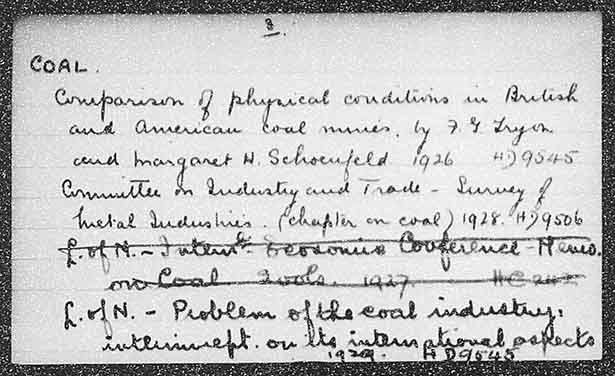 3
COAL.
Comparison of physical conditions in British
and American coal mines, by F. G. Tryon
and Margaret H. Schoenfeld 1926 HD9545
Committee on Industry and Trade - Survey of
Metal Industries. (chapter on coal) 1928. HD9506
L. of N. - Intern'l Economic Conference - Memo.
on Coal 1927. HC
L. of N. - Problem of the coal industry:
interim rept. on its international aspects
1929. HD9545